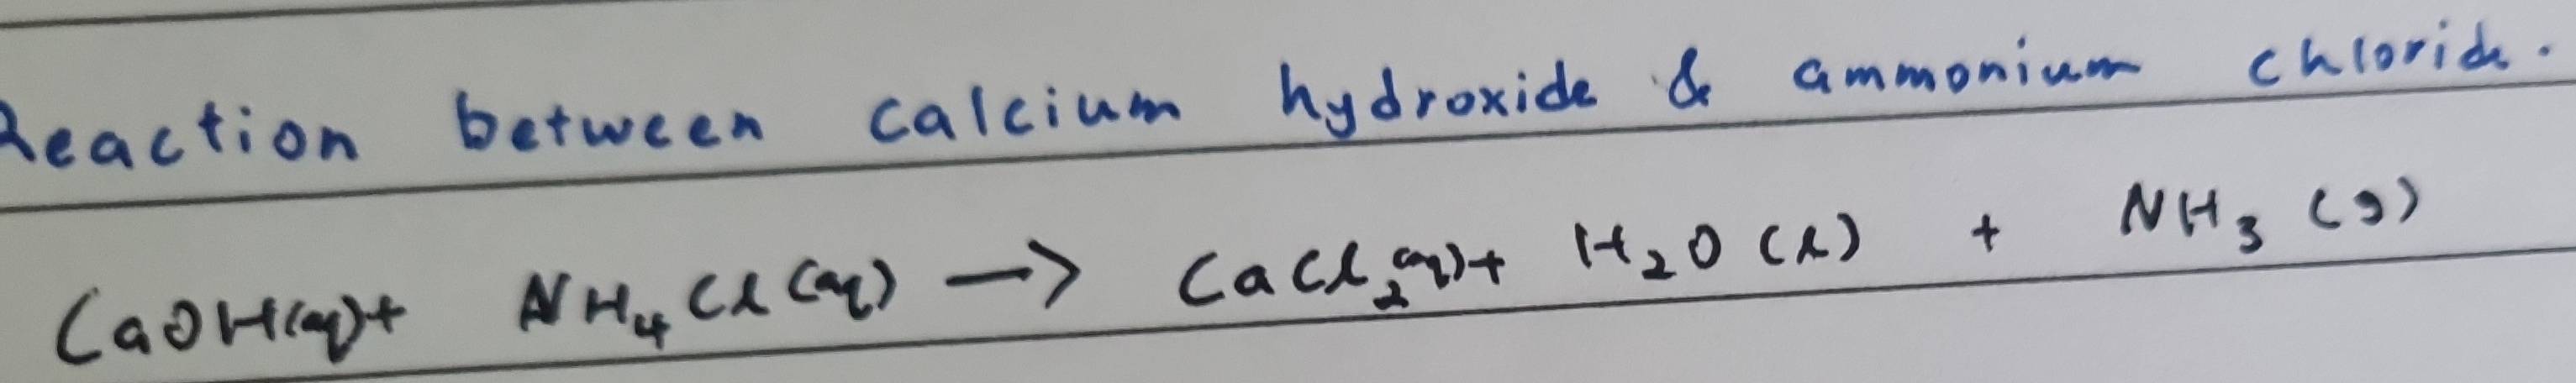 Reaction between calcium hydroxide & ammonium chloride.
CaOH(aq) + NH₄Cl(aq) → CaCl₂(aq) + H₂O(l) + NH₃(g)